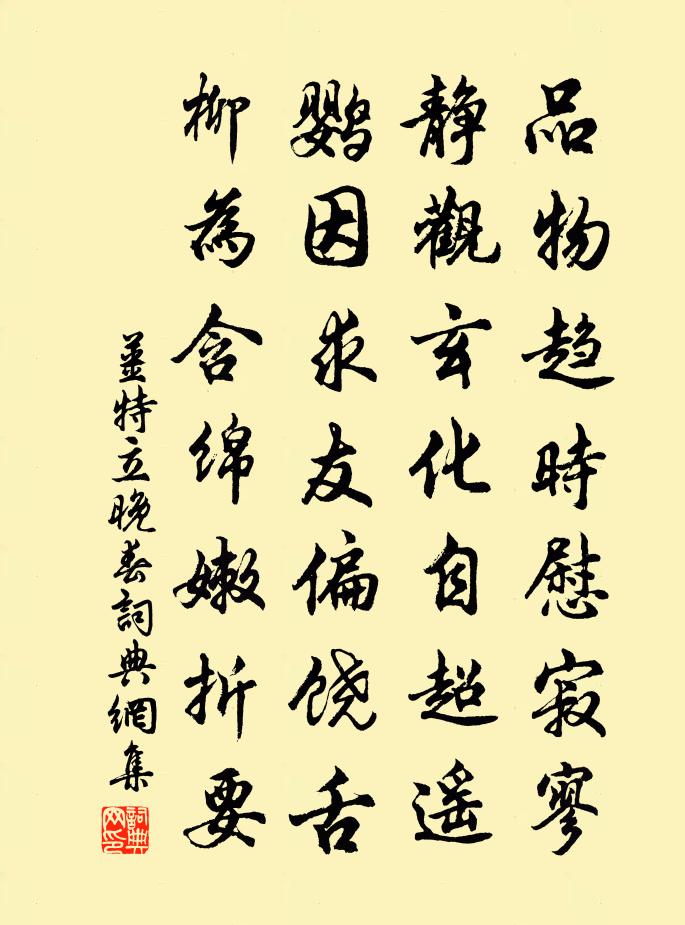 品物趋時慰寂寥
静觀玄化自超遥
鹦因求友偏饶舌
柳為含绵嫩折要
姜特立晚春詞典網集
詞典
网印